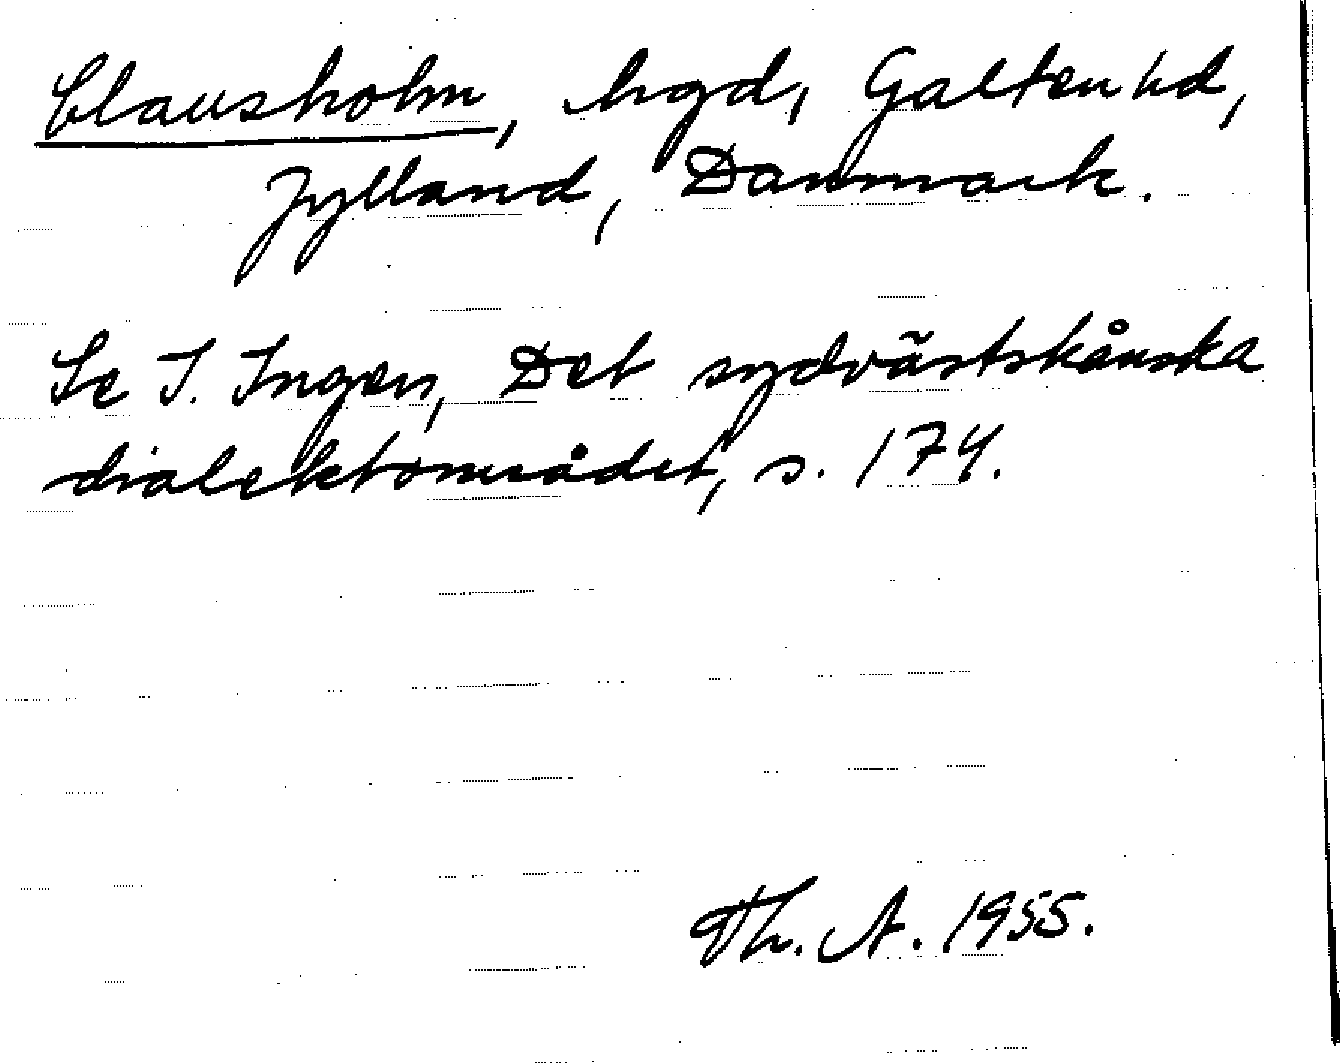 Clausholm, hgd, Galten hd,
Jylland, Danmark.
Se I. Ingers, Det sydvästskånska
dialektområdet, s. 174.
Th. A. 1955.